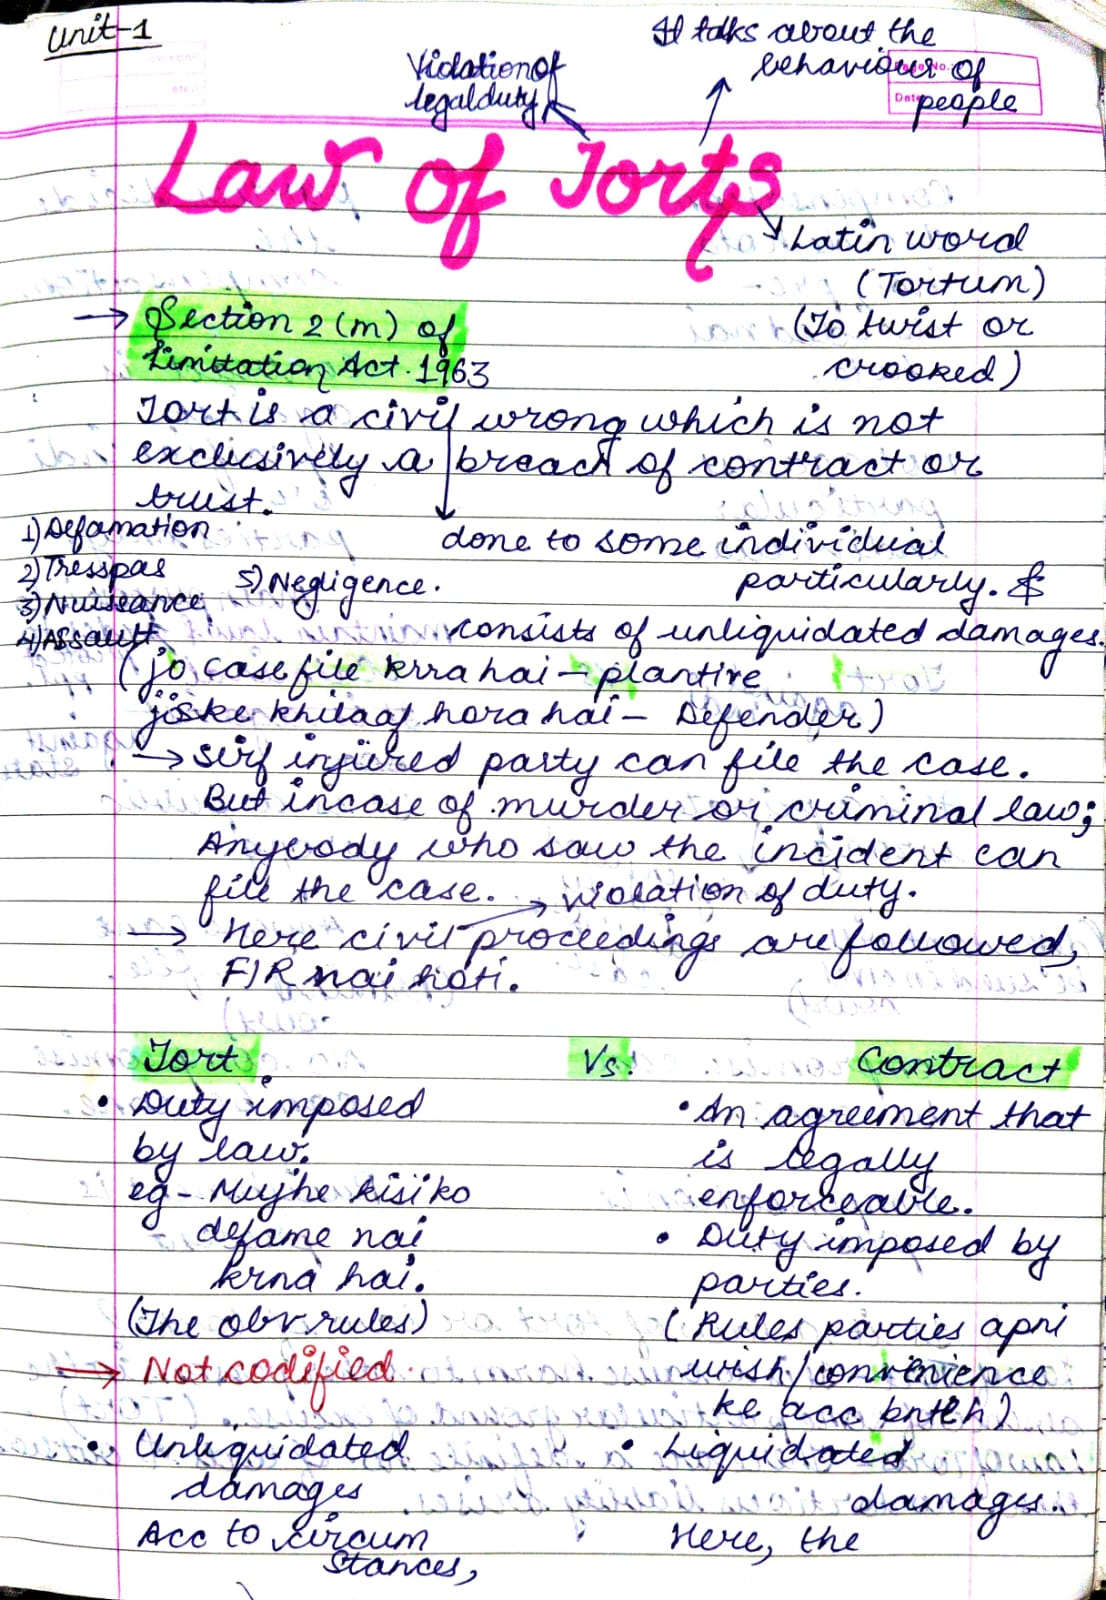 Unit-1
It talks about the
behaviour of
people
Page No.
Date
Violation of
legal duty
Law of Torts
Latin word
(Tortum)
(To twist or
crooked)
→ Section 2 (m) of
Limitation Act. 1963
Tort is a civil wrong which is not
exclusively a breach of contract or
trust.
done to some individual
particularly. &
1) Defamation
2) Tresspas
3) Nuiseance
4) Assault
5) Negligence.
consists of unliquidated damages.
(jo case file krra hai – plantire
jiske khilaaf hora hai – Defender)
→ sirf injured party can file the case.
But incase of murder or criminal law;
Anybody who saw the incident can
file the case.
→ violation of duty.
→ Here civil proceedings are followed,
FIR nai hoti.
Tort Vs. Contract
• Duty imposed
by law.
eg - Mujhe kisiko
defame nai
krna hai.
(The obv. rules)
→ Not codified.
• Unliquidated
damages
Acc to circum
stances,
• An agreement that
is legally
enforceable.
• Duty imposed by
parties.
(Rules parties apni
wish/convenience
ke acc bnteh)
• Liquidated
damages..
Here, the